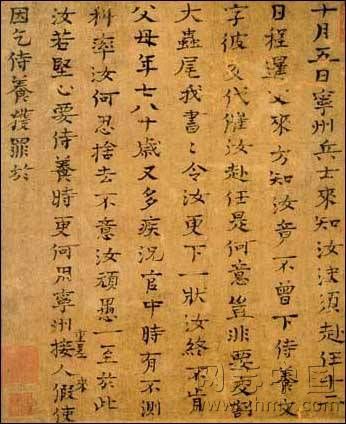 十月五日寧州兵士來知汝決須赴任十二
日程暹父來方知汝竟不曾下侍養文
字彼交代催汝赴任是何意豈非要交割
大蟲尾我書〻令汝更下一狀汝終不肯
父母年七八十歲又多疾況官中時有不測
科率汝何忍捨去不意汝頑愚一至於此
汝若堅心要侍養時更何用寧州接人假使
重疊 來
因乞侍養獲罪於